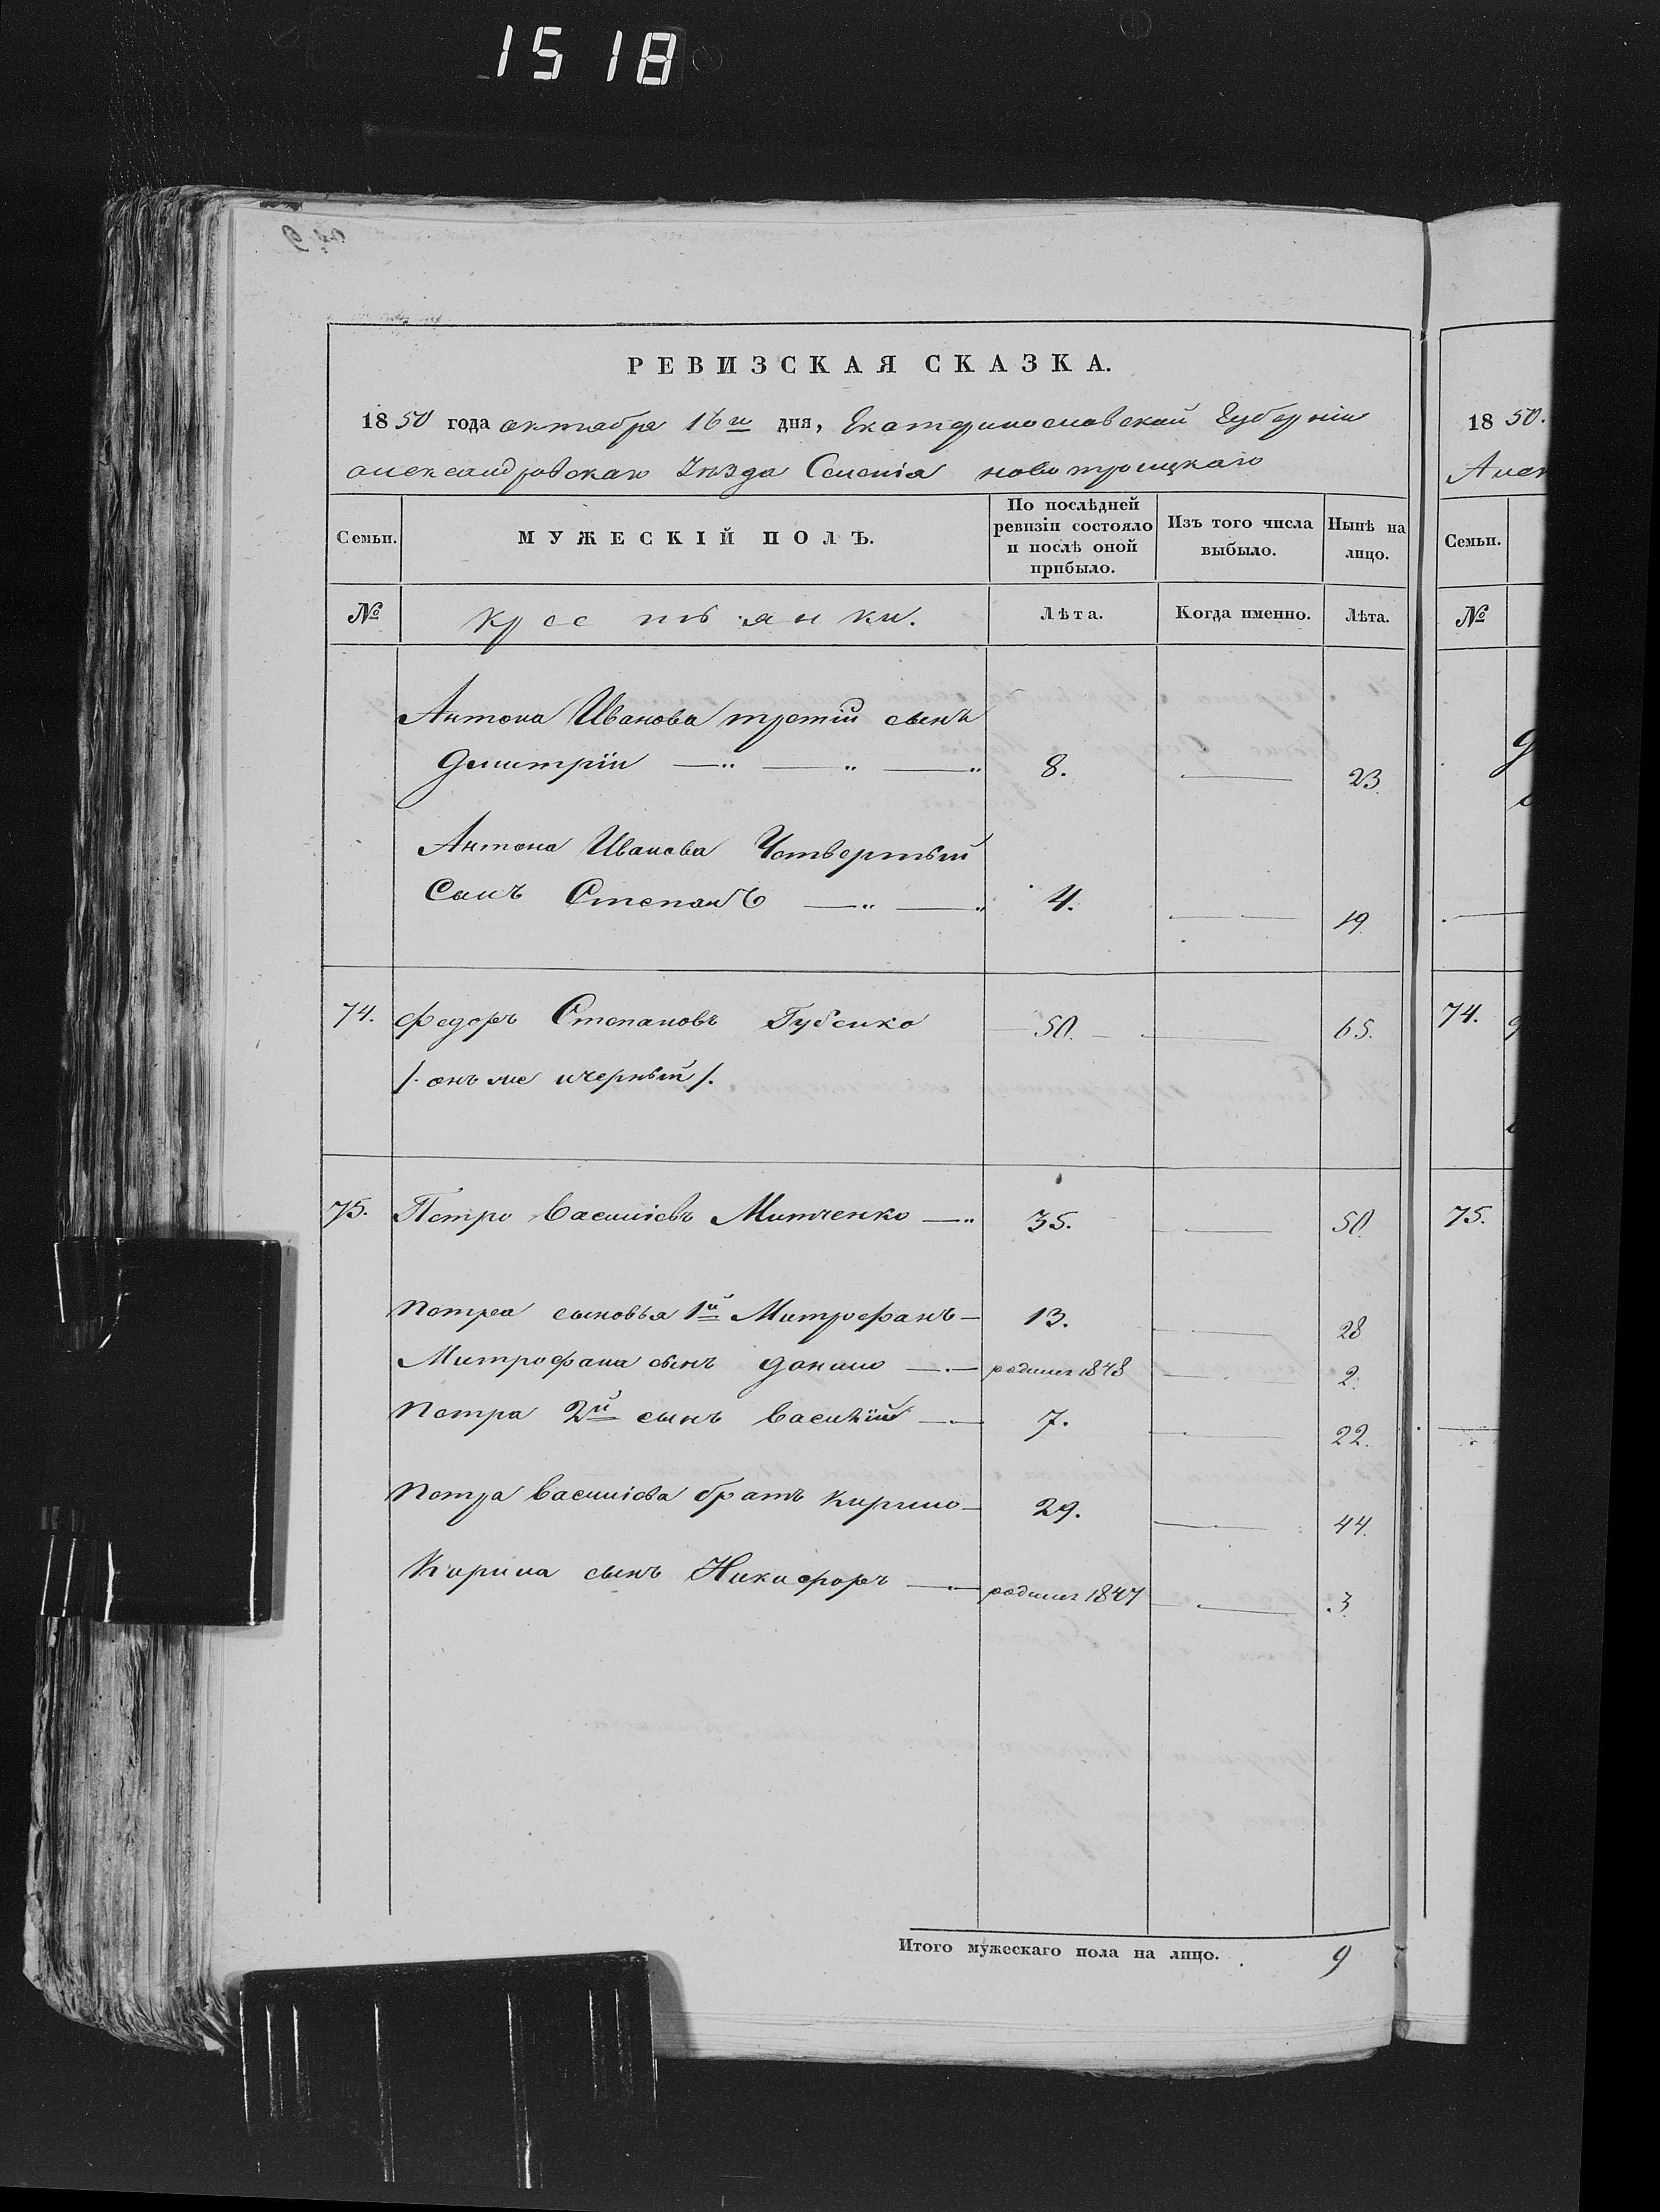 1518
РЕВИЗСКАЯ СКАЗКА.
1850 года октабра 16го дня, Екатеринославской Губерніи
александровскаго Уезда Селенія новотроицкаго
Семьи. МУЖЕСКІЙ ПОЛЪ. По послѣдней ревизіи состояло и послѣ оной прибыло. Изъ того числа выбыло. Нынѣ на лицо.
№ Лѣта. Когда именно. Лѣта.
Антона Иванова третій сынъ
Дмитрій 8. 23.
Антона Иванова Четвертый
Сынъ Степанъ 4. 19.
74. Федоръ Степановъ Губенко 50. 65.
/. онъ же ичерный /.
75. Петро Василіевъ Митченко 35. 50.
Петра сыновья 1й Митрофанъ 13. 28
Митрофана сынъ Данило родился 1848 2.
Петра 2й сынъ Василій 7. 22.
Петра Василіева братъ Кирило 29. 44.
Кирила сынъ Никифоръ родился 1847 3.
Итого мужескаго пола на лицо. 9
1850.
Семьи.
№
74.
75.